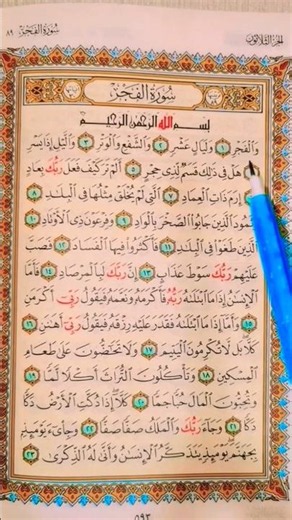 سُورَةُ الفَجۡرِ ٨٩
الجزء الثلاثون
سُورَةُ الفَجۡرِ
بِسۡمِ ٱللَّهِ ٱلرَّحۡمَٰنِ ٱلرَّحِيمِ
وَٱلۡفَجۡرِ ١ وَلَيَالٍ عَشۡرٖ ٢ وَٱلشَّفۡعِ وَٱلۡوَتۡرِ ٣ وَٱلَّيۡلِ إِذَا يَسۡرِ
٤ هَلۡ فِي ذَٰلِكَ قَسَمٞ لِّذِي حِجۡرٍ ٥ أَلَمۡ تَرَ كَيۡفَ فَعَلَ رَبُّكَ بِعَادٍ
٦ إِرَمَ ذَاتِ ٱلۡعِمَادِ ٧ ٱلَّتِي لَمۡ يُخۡلَقۡ مِثۡلُهَا فِي ٱلۡبِلَٰدِ ٨
وَثَمُودَ ٱلَّذِينَ جَابُواْ ٱلصَّخۡرَ بِٱلۡوَادِ ٩ وَفِرۡعَوۡنَ ذِي ٱلۡأَوۡتَادِ ١٠
ٱلَّذِينَ طَغَوۡاْ فِي ٱلۡبِلَٰدِ ١١ فَأَكۡثَرُواْ فِيهَا ٱلۡفَسَادَ ١٢ فَصَبَّ
عَلَيۡهِمۡ رَبُّكَ سَوۡطَ عَذَابٍ ١٣ إِنَّ رَبَّكَ لَبِٱلۡمِرۡصَادِ ١٤ فَأَمَّا
ٱلۡإِنسَٰنُ إِذَا مَا ٱبۡتَلَىٰهُ رَبُّهُۥ فَأَكۡرَمَهُۥ وَنَعَّمَهُۥ فَيَقُولُ رَبِّيٓ أَكۡرَمَنِ
١٥ وَأَمَّآ إِذَا مَا ٱبۡتَلَىٰهُ فَقَدَرَ عَلَيۡهِ رِزۡقَهُۥ فَيَقُولُ رَبِّيٓ أَهَٰنَنِ ١٦
كَلَّاۖ بَل لَّا تُكۡرِمُونَ ٱلۡيَتِيمَ ١٧ وَلَا تَحَٰٓضُّونَ عَلَىٰ طَعَامِ
ٱلۡمِسۡكِينِ ١٨ وَتَأۡكُلُونَ ٱلتُّرَاثَ أَكۡلٗا لَّمّٗا ١٩
وَتُحِبُّونَ ٱلۡمَالَ حُبّٗا جَمّٗا ٢٠ كَلَّآۖ إِذَا دُكَّتِ ٱلۡأَرۡضُ دَكّٗا
دَكّٗا ٢١ وَجَآءَ رَبُّكَ وَٱلۡمَلَكُ صَفّٗا صَفّٗا ٢٢ وَجِاْيٓءَ يَوۡمَئِذِۭ
بِجَهَنَّمَۚ يَوۡمَئِذٖ يَتَذَكَّرُ ٱلۡإِنسَٰنُ وَأَنَّىٰ لَهُ ٱلذِّكۡرَىٰ ٢٣
٥٩٣